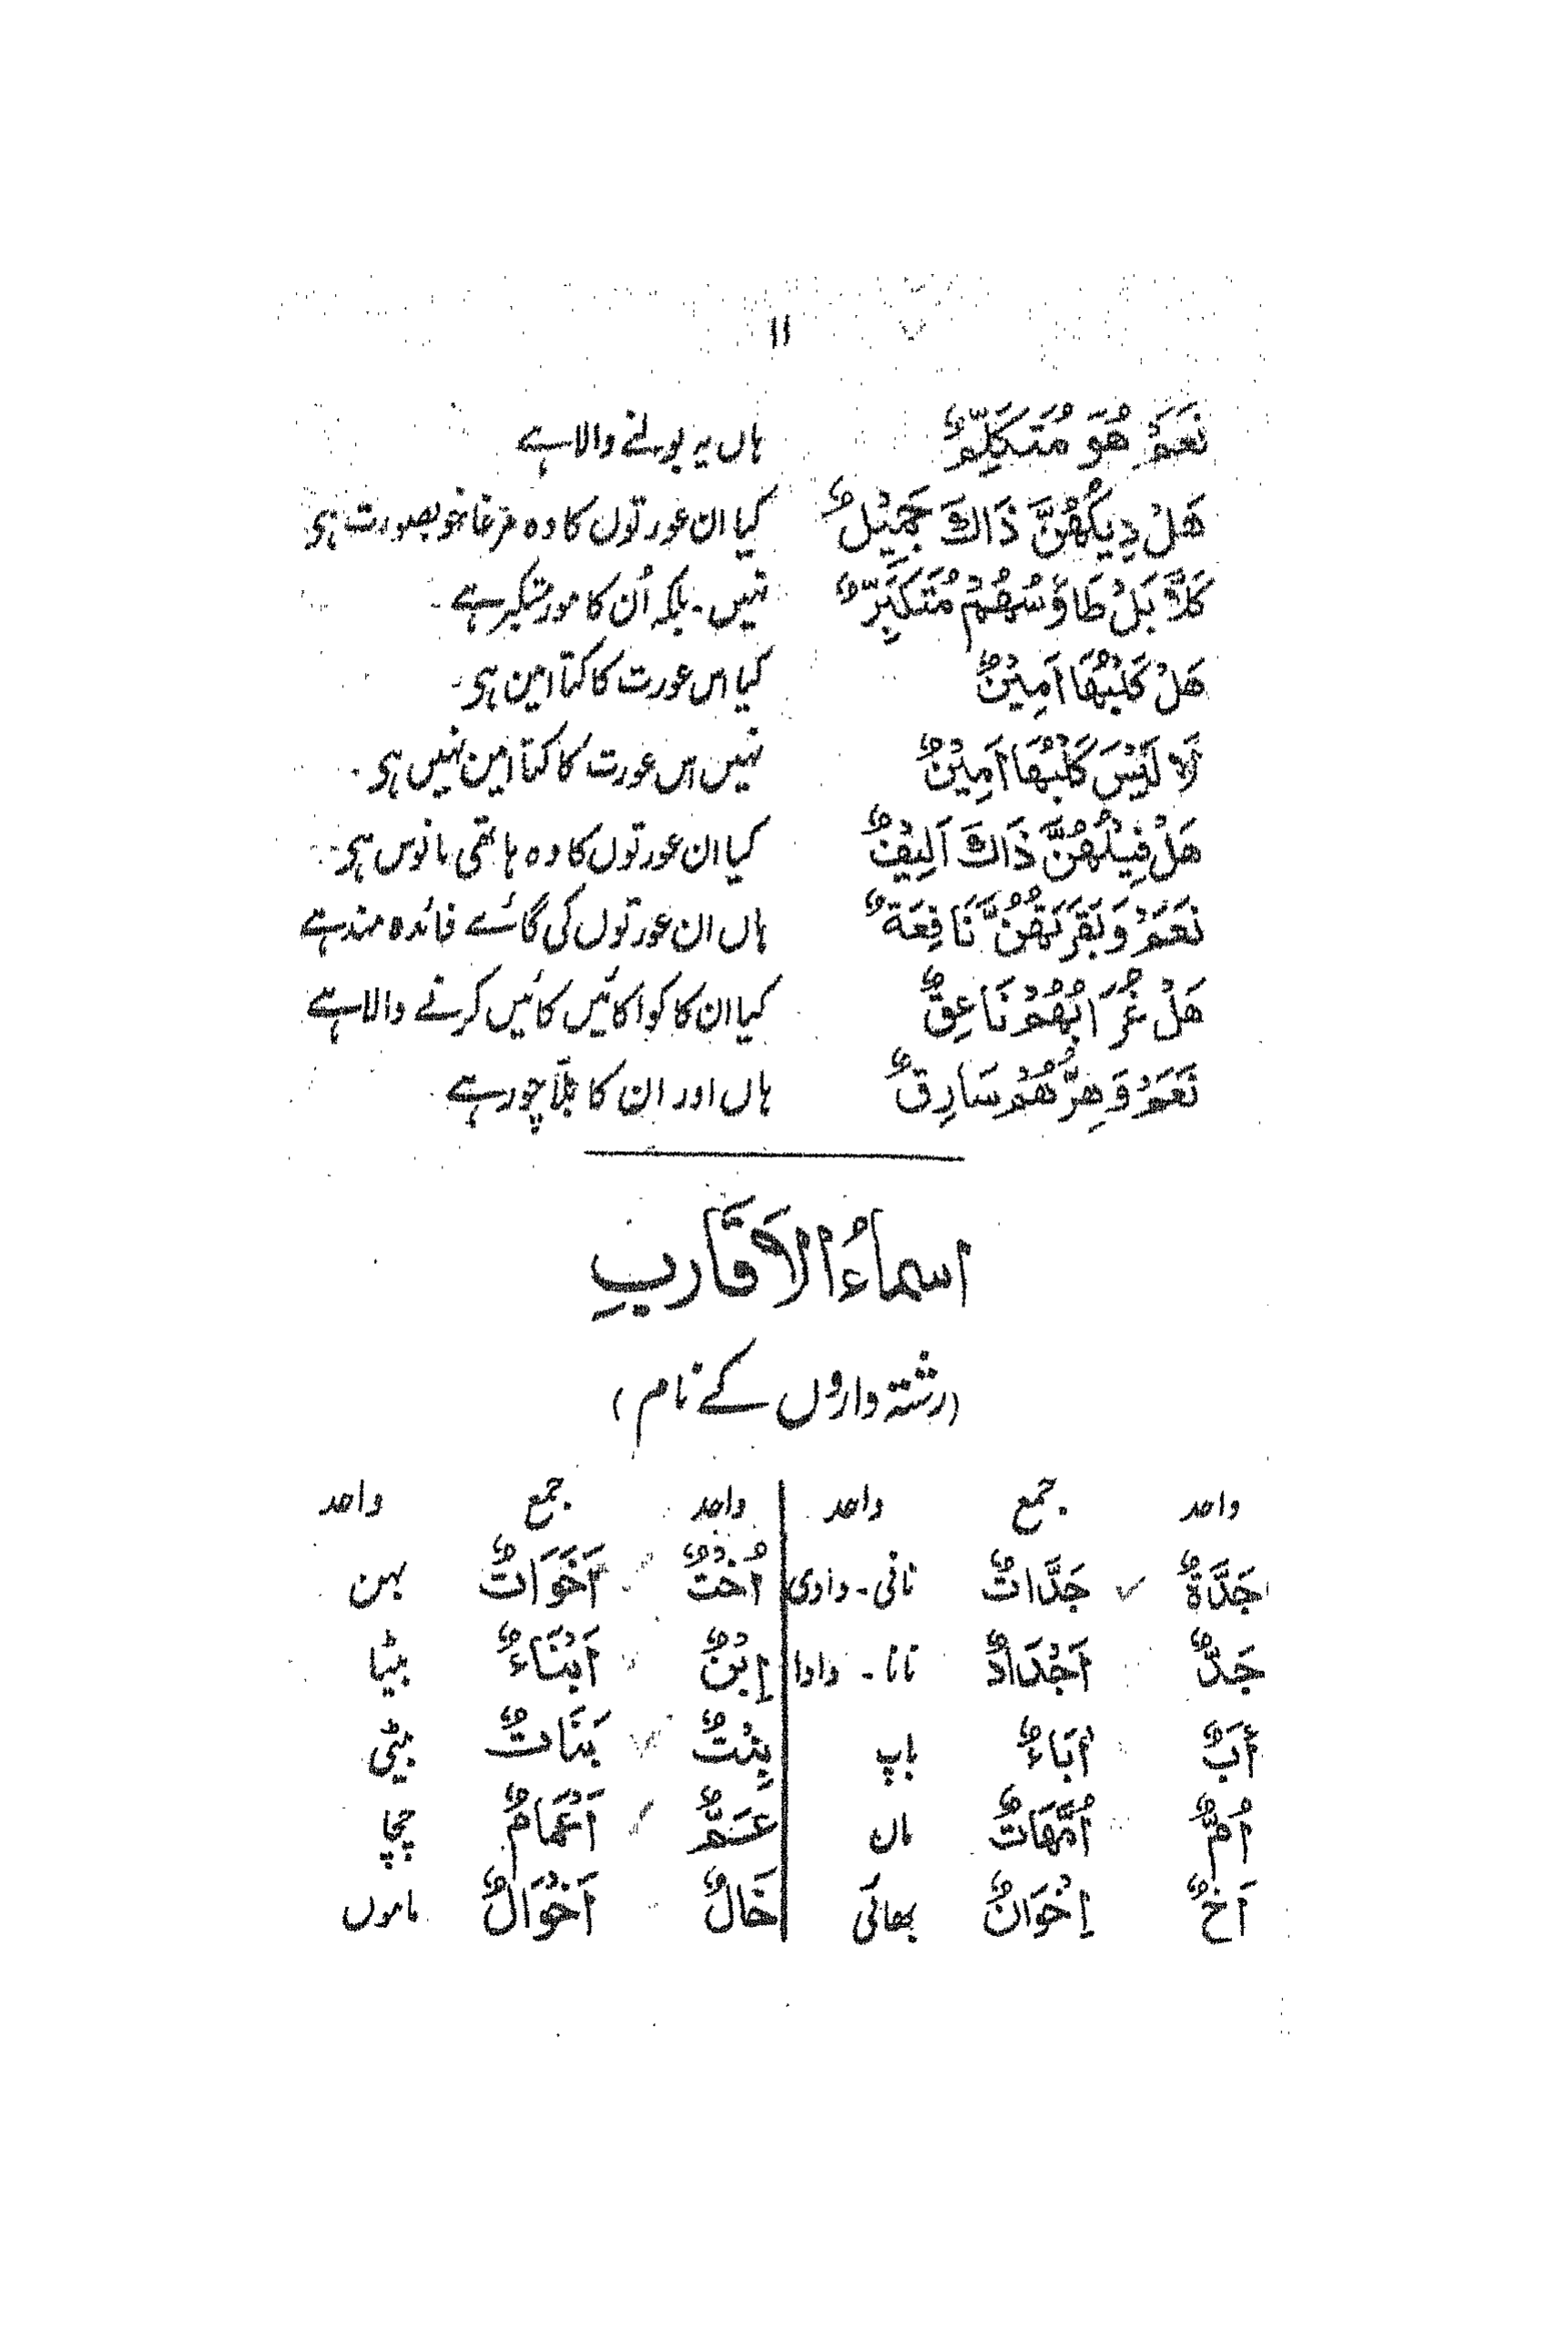 ۱۱
نَعَمْ هُوَ مُتَكَلِّمٌ ہاں یہ بولنے والا ہے
هَلْ دِيكُهُنَّ ذَاكَ جَمِيْلٌ کیا ان عورتوں کا وہ مرغا خوبصورت ہی
كَلَّا بَلْ طَاوُسُهُمْ مُتَكَبِّرٌ نہیں۔ بلکہ اُن کا مور متکبر ہے۔
هَلْ كَلْبُهَا اَمِيْنٌ کیا اس عورت کا کتا امین ہی۔
لَا لَيْسَ كَلْبُهَا اَمِيْنٌ نہیں اس عورت کا کتا امین نہیں ہی۔
هَلْ فِيْلُهُنَّ ذَاكَ اَلِيْفٌ کیا ان عورتوں کا وہ ہاتھی مانوس ہی۔
نَعَمْ وَبَقَرَتُهُنَّ نَافِعَةٌ ہاں ان عورتوں کی گائے فائدہ مند ہے
هَلْ غُرَابُهُمْ نَاعِقٌ کیا ان کا کوا کائیں کائیں کرنے والا ہے
نَعَمْ وَهِرُّهُمْ سَارِقٌ ہاں اور ان کا بلّا چور ہے
اسماءُ الاَقَارِبِ
(رشتہ داروں کے نام)
واحد جمع واحد واحد جمع واحد
جَدَّةٌ جَدَّاتٌ نانی۔ دادی اُخْتٌ اَخَوَاتٌ بہن
جَدٌّ اَجْدَادٌ نانا۔ دادا اِبْنٌ اَبْنَاءٌ بیٹا
أَبٌ أٰبَاءٌ باپ بِنْتٌ بَنَاتٌ بیٹی
اُمٌّ اُمَّهَاتٌ ماں عَمٌّ اَعْمَامٌ چچا
اَخٌ اِخْوَانٌ بھائی خَالٌ اَخْوَالٌ ماموں